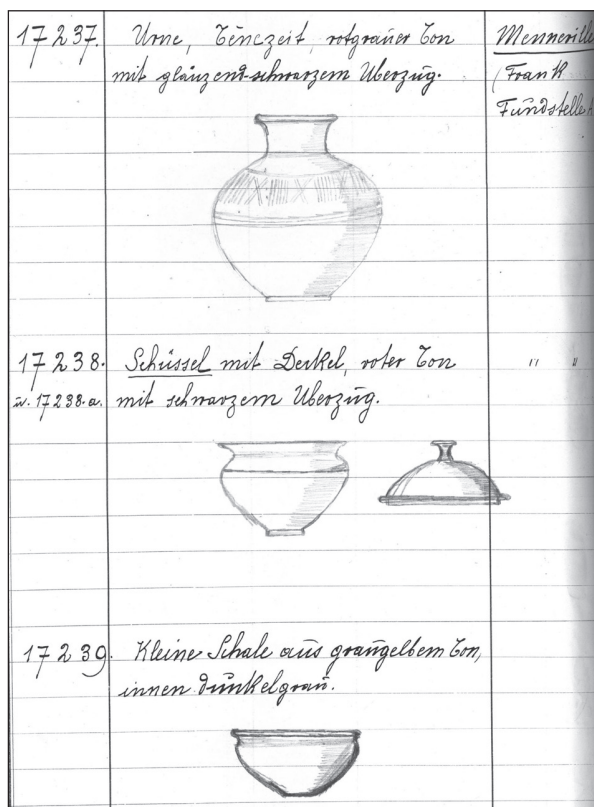 17237. Urne, Tènezeit, rotgrauer Ton
mit glänzend-schwarzem Überzug.
Menneville
(Frank
Fundstelle
17238. Schüssel mit Deckel, roter Ton
u. 17238.a. mit schwarzem Überzug.
" "
17239. Kleine Schale aus graugelbem Ton,
innen dunkelgrau.